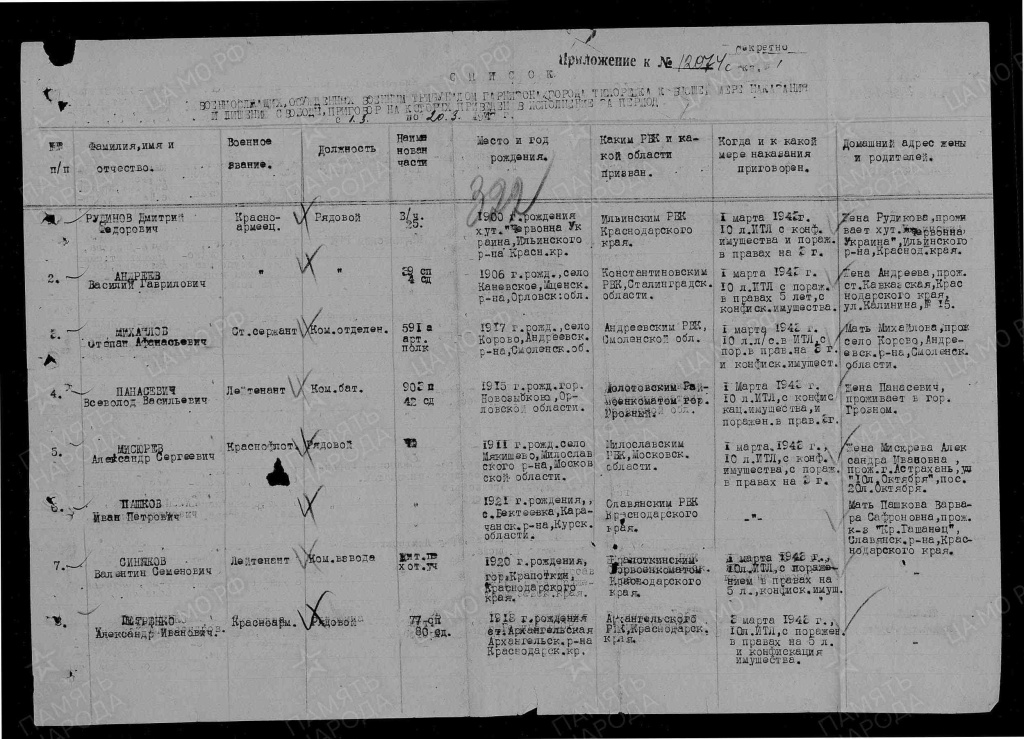 секретно
Приложение к № 12074с
СПИСОК
ВОЕННОСЛУЖАЩИХ, ОСУЖДЕННЫХ ВОЕННЫМ ТРИБУНАЛОМ ГАРНИЗОНА ГОРОДА ТИХОРЕЦКА К ВЫСШЕЙ МЕРЕ НАКАЗАНИЯ
И ЛИШЕНИЮ СВОБОДЫ, ПРИГОВОР НА КОТОРЫХ ПРИВЕДЕН В ИСПОЛНЕНИЕ ЗА ПЕРИОД
с 1.3. по 20.3.
№№ п/п
Фамилия,имя и отчество.
Военное звание.
Должность
Наименован части
Место и год рождения.
Каким РВК и какой области призван.
Когда и к какой мере наказания приговорен.
Домашний адрес жены и родителей.
332
РУДИНОВ Дмитрий
Федорович
Красно-
армеец.
Рядовой
З/ч.
25.
1900 г.рождения
хут."Червонна Ук
раина,Ильинского
р-на Красн.кр.
Ильинским РВК
Краснодарского
края.
1 марта 1943г.
10 л.ИТЛ с конф.
имущества и пораж.
в правах на г.
Жена Рудикова,прожи
вает хут.
Украина",Ильинского
р-на,Краснод.края.
2.
АНДРЕЕВ
Василий Гаврилович
"
"
39 сп
4 сд
1906 г.рожд.,село
Каневское,Мценск.
р-на,Орловск.обл.
Константиновским
РВК,Сталинградск.
области.
1 марта 1943 г.
10 л.ИТЛ с пораж.
в правах 5 лет,с
конфиск.имущества.
Жена Андреева,прож.
ст.Кавказская,Крас
нодарского края,
ул.Калинина,№ 15.
3.
МИХАЙЛОВ
Степан Афанасьевич
Ст.сержант
Ком.отделен.
591 а
арт.
полк
1917 г.рожд.,село
Корово,Андреевск.
р-на,Смоленск.об.
Андреевским РВК,
Смоленской обл.
1 марта 1943 г.
10 л.л/с.в ИТЛ,с
пор.в прав.на г.
и конфиск.имущест.
Мать Михайлова,прож
село Корово,Андре-
евск.р-на,Смоленск.
области.
4.
ПАНАСЕВИЧ
Всеволод Васильевич
Лейтенант
Ком.бат.
903 п
42 сд
1915 г.рожд.гор.
Новозыбково,Ор-
ловской области.
Молотовским Рай-
военкоматом гор.
Грозный.
1 Марта 1943 г.
10 л.ИТЛ,с конфис
кац.имущества,и
поражен.в прав. г.
Жена Панасевич,
проживает в гор.
Грозном.
5.
МИСЮРЕВ
Александр Сергеевич
Краснофлот.
Рядовой
1911 г.рожд.село
Мякишево,Милослав
ского р-на,Москов
ской области.
Милославским
РВК,Московск.
области.
1 марта.1943 г.
10 л.ИТЛ,с конф.
имущества,с пораж.
в правах на г.
Жена Мискрева Алек
сандра Ивановна,
прож.г.Астрахань,ул
"10л.Октября",пос.
20л.Октября.
6.
ПАШКОВ
Иван Петрович
"
"
1921 г.рождения,
с.Бектеевка,Кара-
чанск.р-на,Курск.
области.
Славянским РВК
Краснодарского
края.
-"-
Мать Пашкова Варва-
ра Сафроновна,прож.
к-з "Кр.Ташанец",
Славянск.р-на,Крас-
нодарского края.
7.
СИНЯКОВ
Валентин Семенович
Лейтенант
Ком.взвода
1920 г.рождения,
гор.Крапоткин,
Краснодарского
края.
Крапоткинским
Горвоенкоматом
Краснодарского
края.
1 марта 1943 г.,
10л.ИТЛ,с пораже-
нием в правах на
5 л.,конфиск.имущ.
-
8.
Александр Иванович.
Красноарм.
Рядовой
77 сп
80 сд.
1918 г.рождения
ст.Архангельская
Архангельск.р-на
Краснодарск.кр.
Архангельского
РВК,Краснодарск.
края.
3 марта 1943 г.,
10л.ИТЛ,с поражен.
в правах на 5 л.
и конфискация
имущества.
-
ЦАМО РФ
ПАМЯТЬ НАРОДА